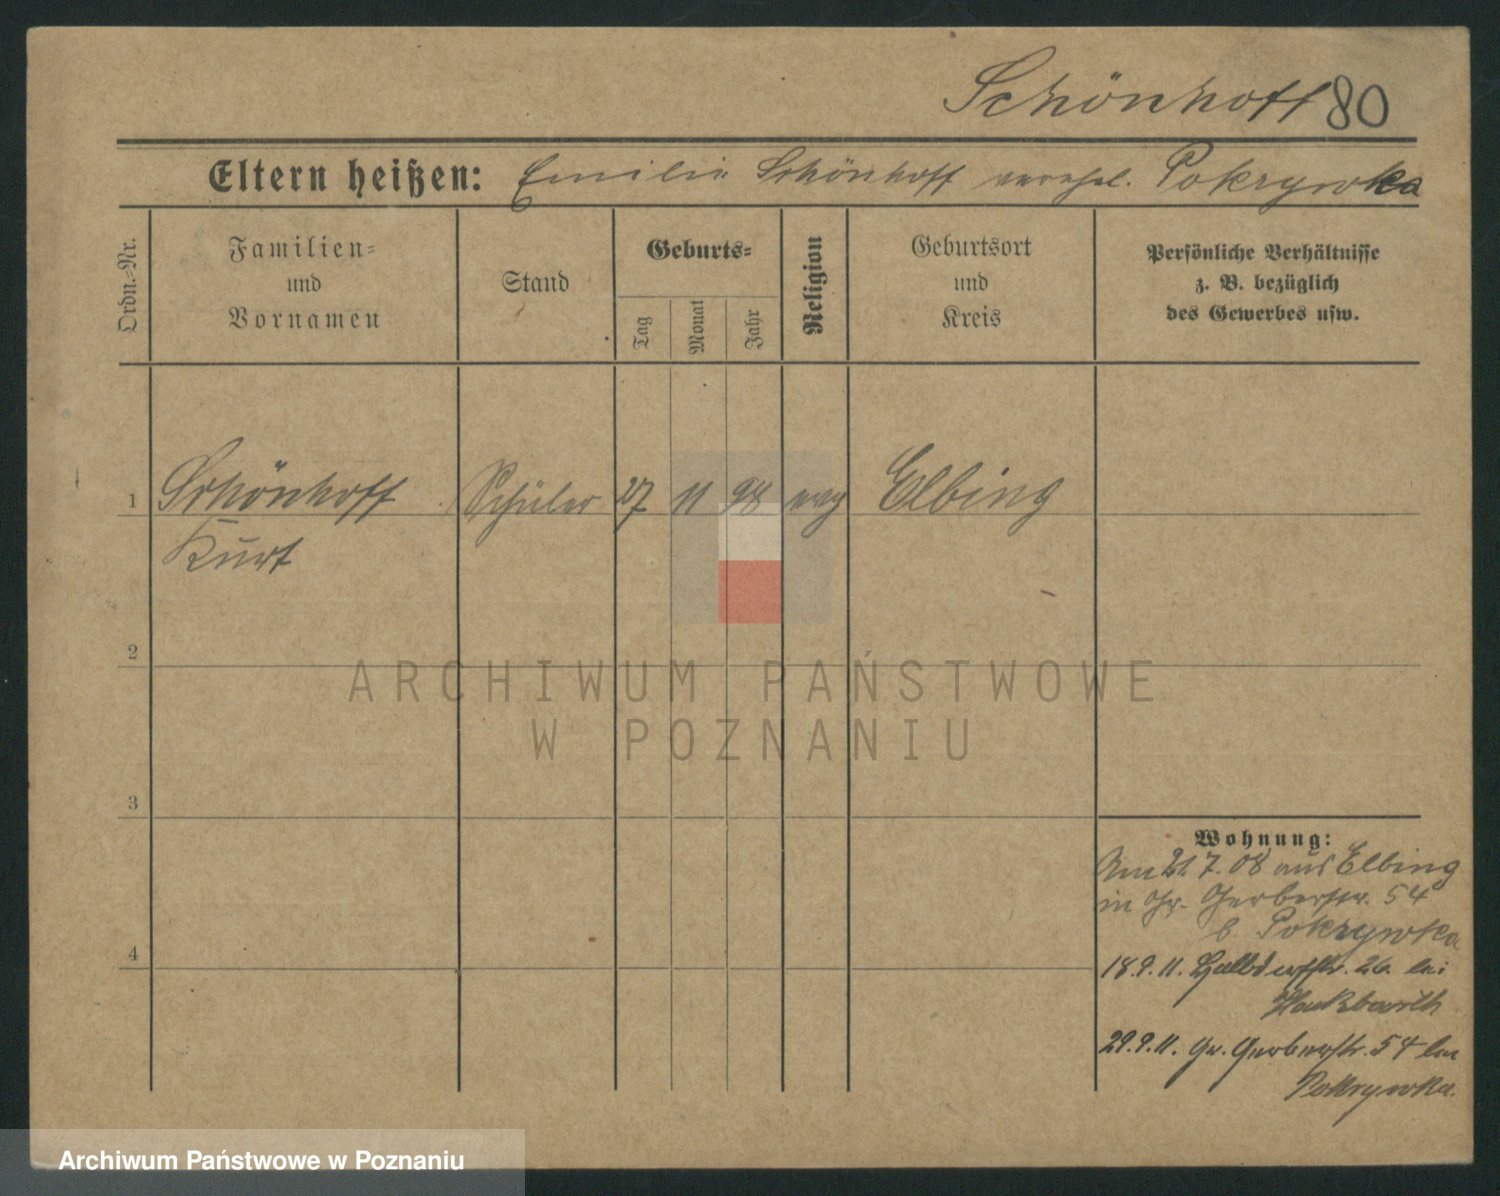 Schönhoff 80
Eltern heißen: Emilie Schönhoff verehel. Pokrywka
Ordn.-Nr.
Familien-
und
Vornamen
Stand
Geburts-
Tag
Monat
Jahr
Religion
Geburtsort
und
Kreis
Persönliche Verhältnisse
z. B. bezüglich
des Gewerbes usw.
1 Schönhoff Schüler 27 11 98 evg Elbing
Kurt
2
3
4
Wohnung:
Am 21. 7. 08 aus Elbing
in Gr. Gerberstr. 54
b. Pokrywka
18.9.11. Halbdorfstr. 26 bei
Hackbarth
29.9.11. Gr. Gerberstr. 54 bei
Pokrywka.
ARCHIWUM PAŃSTWOWE
W POZNANIU
Archiwum Państwowe w Poznaniu